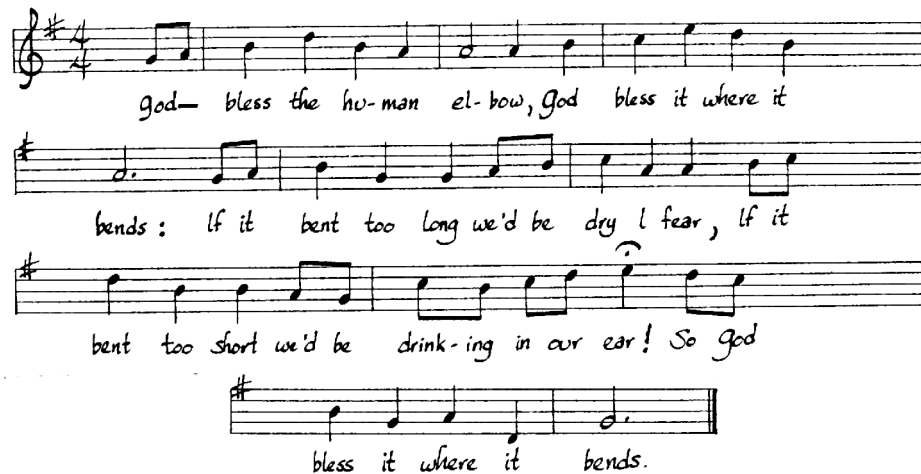 god— bless the hu-man el-bow, god bless it where it
bends: If it bent too long we'd be dry I fear, If it
bent too short we'd be drink-ing in our ear! So god
bless it where it bends.